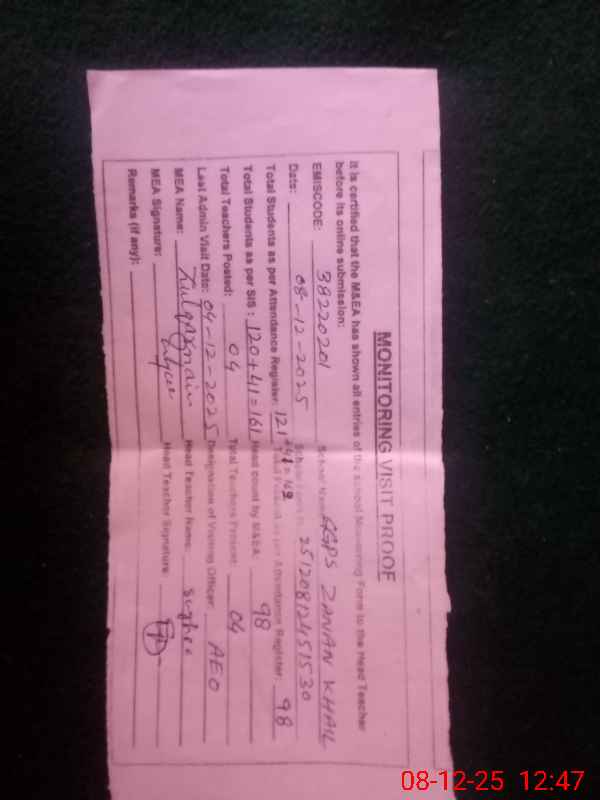 MONITORING VISIT PROOF
It is certified that the M&EA has shown all entries of the school Monitoring Form to the Head Teacher
before its online submission:
EMISCODE: 38220201 School Name: GGPS ZANAN KHAIL
Date: 08-12-2025 25120812451530
Total Students as per Attendance Register: 121+41=162 Total Present as per Attendance Register: 98
Total Students as per SIS: 120+41=161 Head count by M&EA: 98
Total Teachers Posted: 04 Total Teachers Present: 04
Last Admin Visit Date: 04-12-2025 Designation of Visiting Officer: AEO
MEA Name: Zulqarnain Head Teacher Name:
MEA Signature: Head Teacher Signature:
Remarks (if any):
08-12-25 12:47